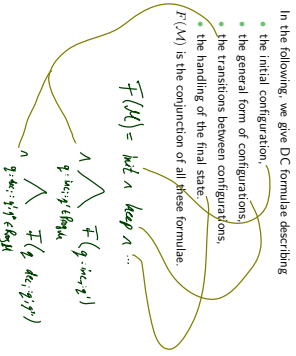 In the following, we give DC formulae describing
• the initial configuration,
• the general form of configurations,
• the transitions between configurations,
• the handling of the final state.
F(M) is the conjunction of all these formulae.
F(M) = init ∧ keep ∧ ...
∧ ⋀ F(q : inc_i : q')
q : inc_i : q' ∈ Prog_M
∧ ⋀ F(q : dec_i : q', q'')
q : dec_i : q', q'' ∈ Prog_M